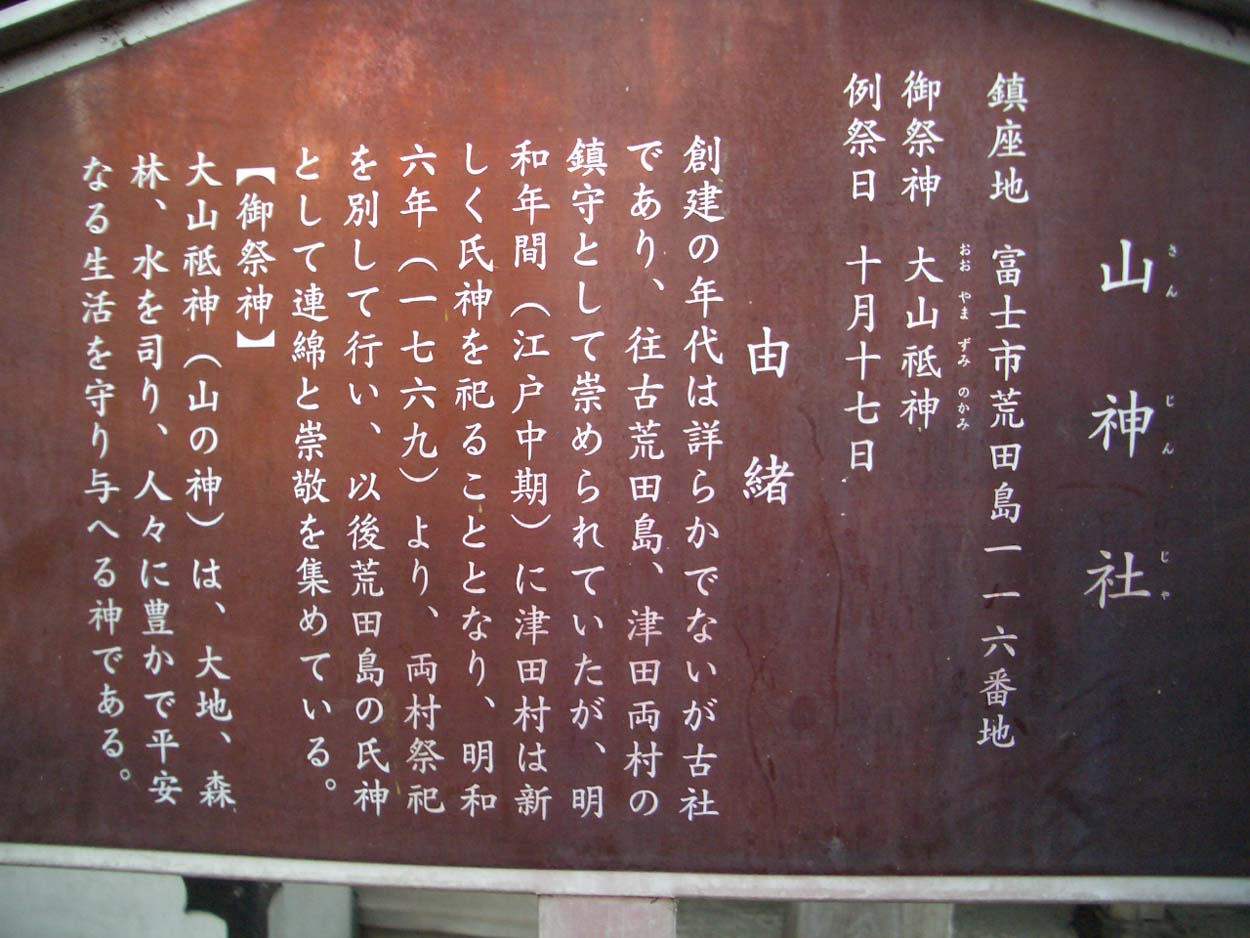 山神社
さんじんじゃ
鎮座地 富士市荒田島一一六番地
御祭神 大山祗神
おおやまずみのかみ
例祭日 十月十七日
由緒
創建の年代は詳らかでないが古社
であり、往古荒田島、津田両村の
鎮守として崇められていたが、明
和年間（江戸中期）に津田村は新
しく氏神を祀ることとなり、明和
六年（一七六九）より、両村祭祀
を別して行い、以後荒田島の氏神
として連綿と崇敬を集めている。
【御祭神】
大山祗神（山の神）は、大地、森
林、水を司り、人々に豊かで平安
なる生活を守り与へる神である。